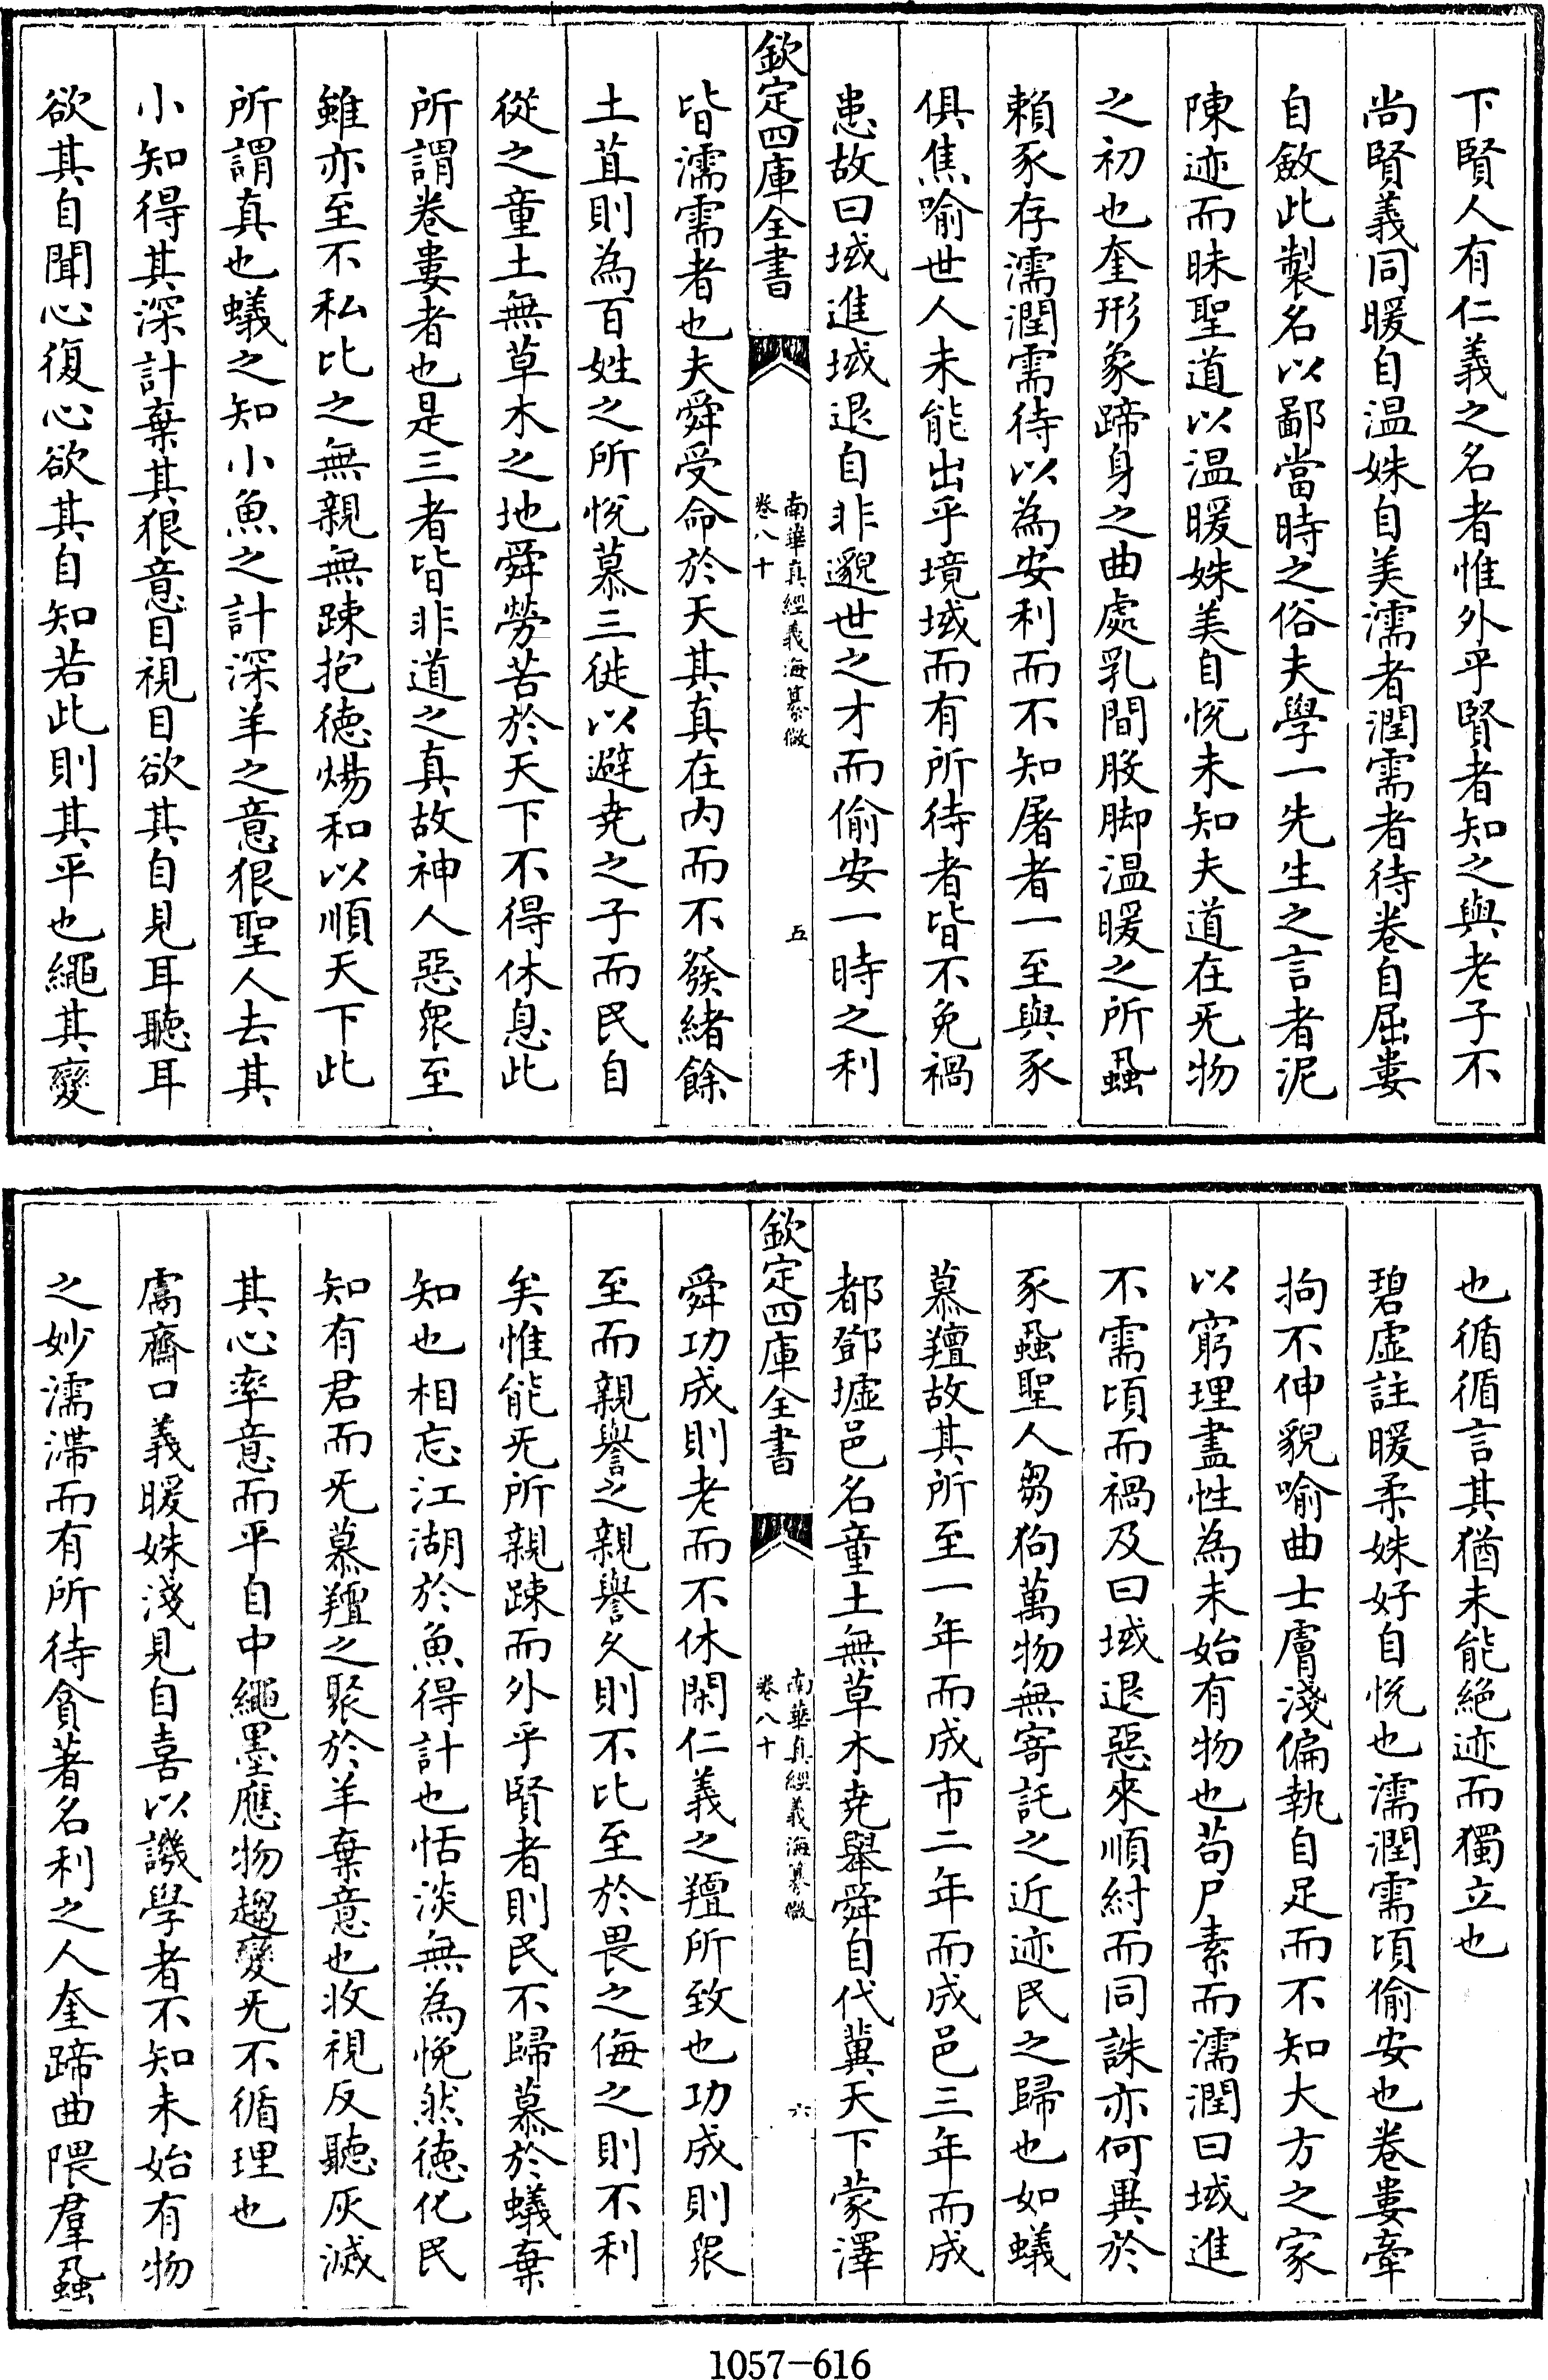 下賢人有仁義之名者惟外乎賢者知之與老子不
尚賢義同暖自温姝自美濡者潤需者待卷自屈婁
自斂此製名以鄙當時之俗夫學一先生之言者泥
陳迹而昧聖道以温暖姝美自悦未知夫道在旡物
之初也奎形象蹄身之曲處乳間股脚温暖之所蝨
賴豕存濡潤需待以為安利而不知屠者一至與豕
俱焦喻世人未能出乎境域而有所待者皆不免禍
患故曰域進域退自非邈世之才而偷安一時之利
欽定四庫全書
南華真經義海纂微
卷八十
五
皆濡需者也夫舜受命於天其真在内而不發緒餘
土苴則為百姓之所悦慕三徙以避堯之子而民自
從之童土無草木之地舜勞苦於天下不得休息此
所謂卷婁者也是三者皆非道之真故神人惡衆至
雖亦至不私比之無親無踈抱德煬和以順天下此
所謂真也蟻之知小魚之計深羊之意狠聖人去其
小知得其深計棄其狠意目視目欲其自見耳聽耳
欲其自聞心復心欲其自知若此則其平也繩其變
也循循言其猶未能絶迹而獨立也
碧虚註暖柔姝好自悦也濡潤需頃偷安也卷婁牽
拘不伸貎喻曲士膚淺偏執自足而不知大方之家
以窮理盡性為未始有物也苟尸素而濡潤曰域進
不需頃而禍及曰域退惡來順紂而同誅亦何異於
豕蝨聖人芻狗萬物無寄託之近迹民之歸也如蟻
慕羶故其所至一年而成市二年而成邑三年而成
都鄧墟邑名童土無草木堯舉舜自代冀天下蒙澤
欽定四庫全書
南華真經義海纂微
卷八十
六
舜功成則老而不休閑仁義之羶所致也功成則衆
至而親譽之親譽久則不比至於畏之侮之則不利
矣惟能旡所親踈而外乎賢者則民不歸慕於蟻棄
知也相忘江湖於魚得計也恬淡無為悗然德化民
知有君而旡慕羶之聚於羊棄意也收視反聽灰滅
其心率意而平自中繩墨應物趨變旡不循理也
鬳齋口義暖姝淺見自喜以譏學者不知未始有物
之妙濡滯而有所待貪著名利之人奎蹄曲隈羣蝨
1057-616